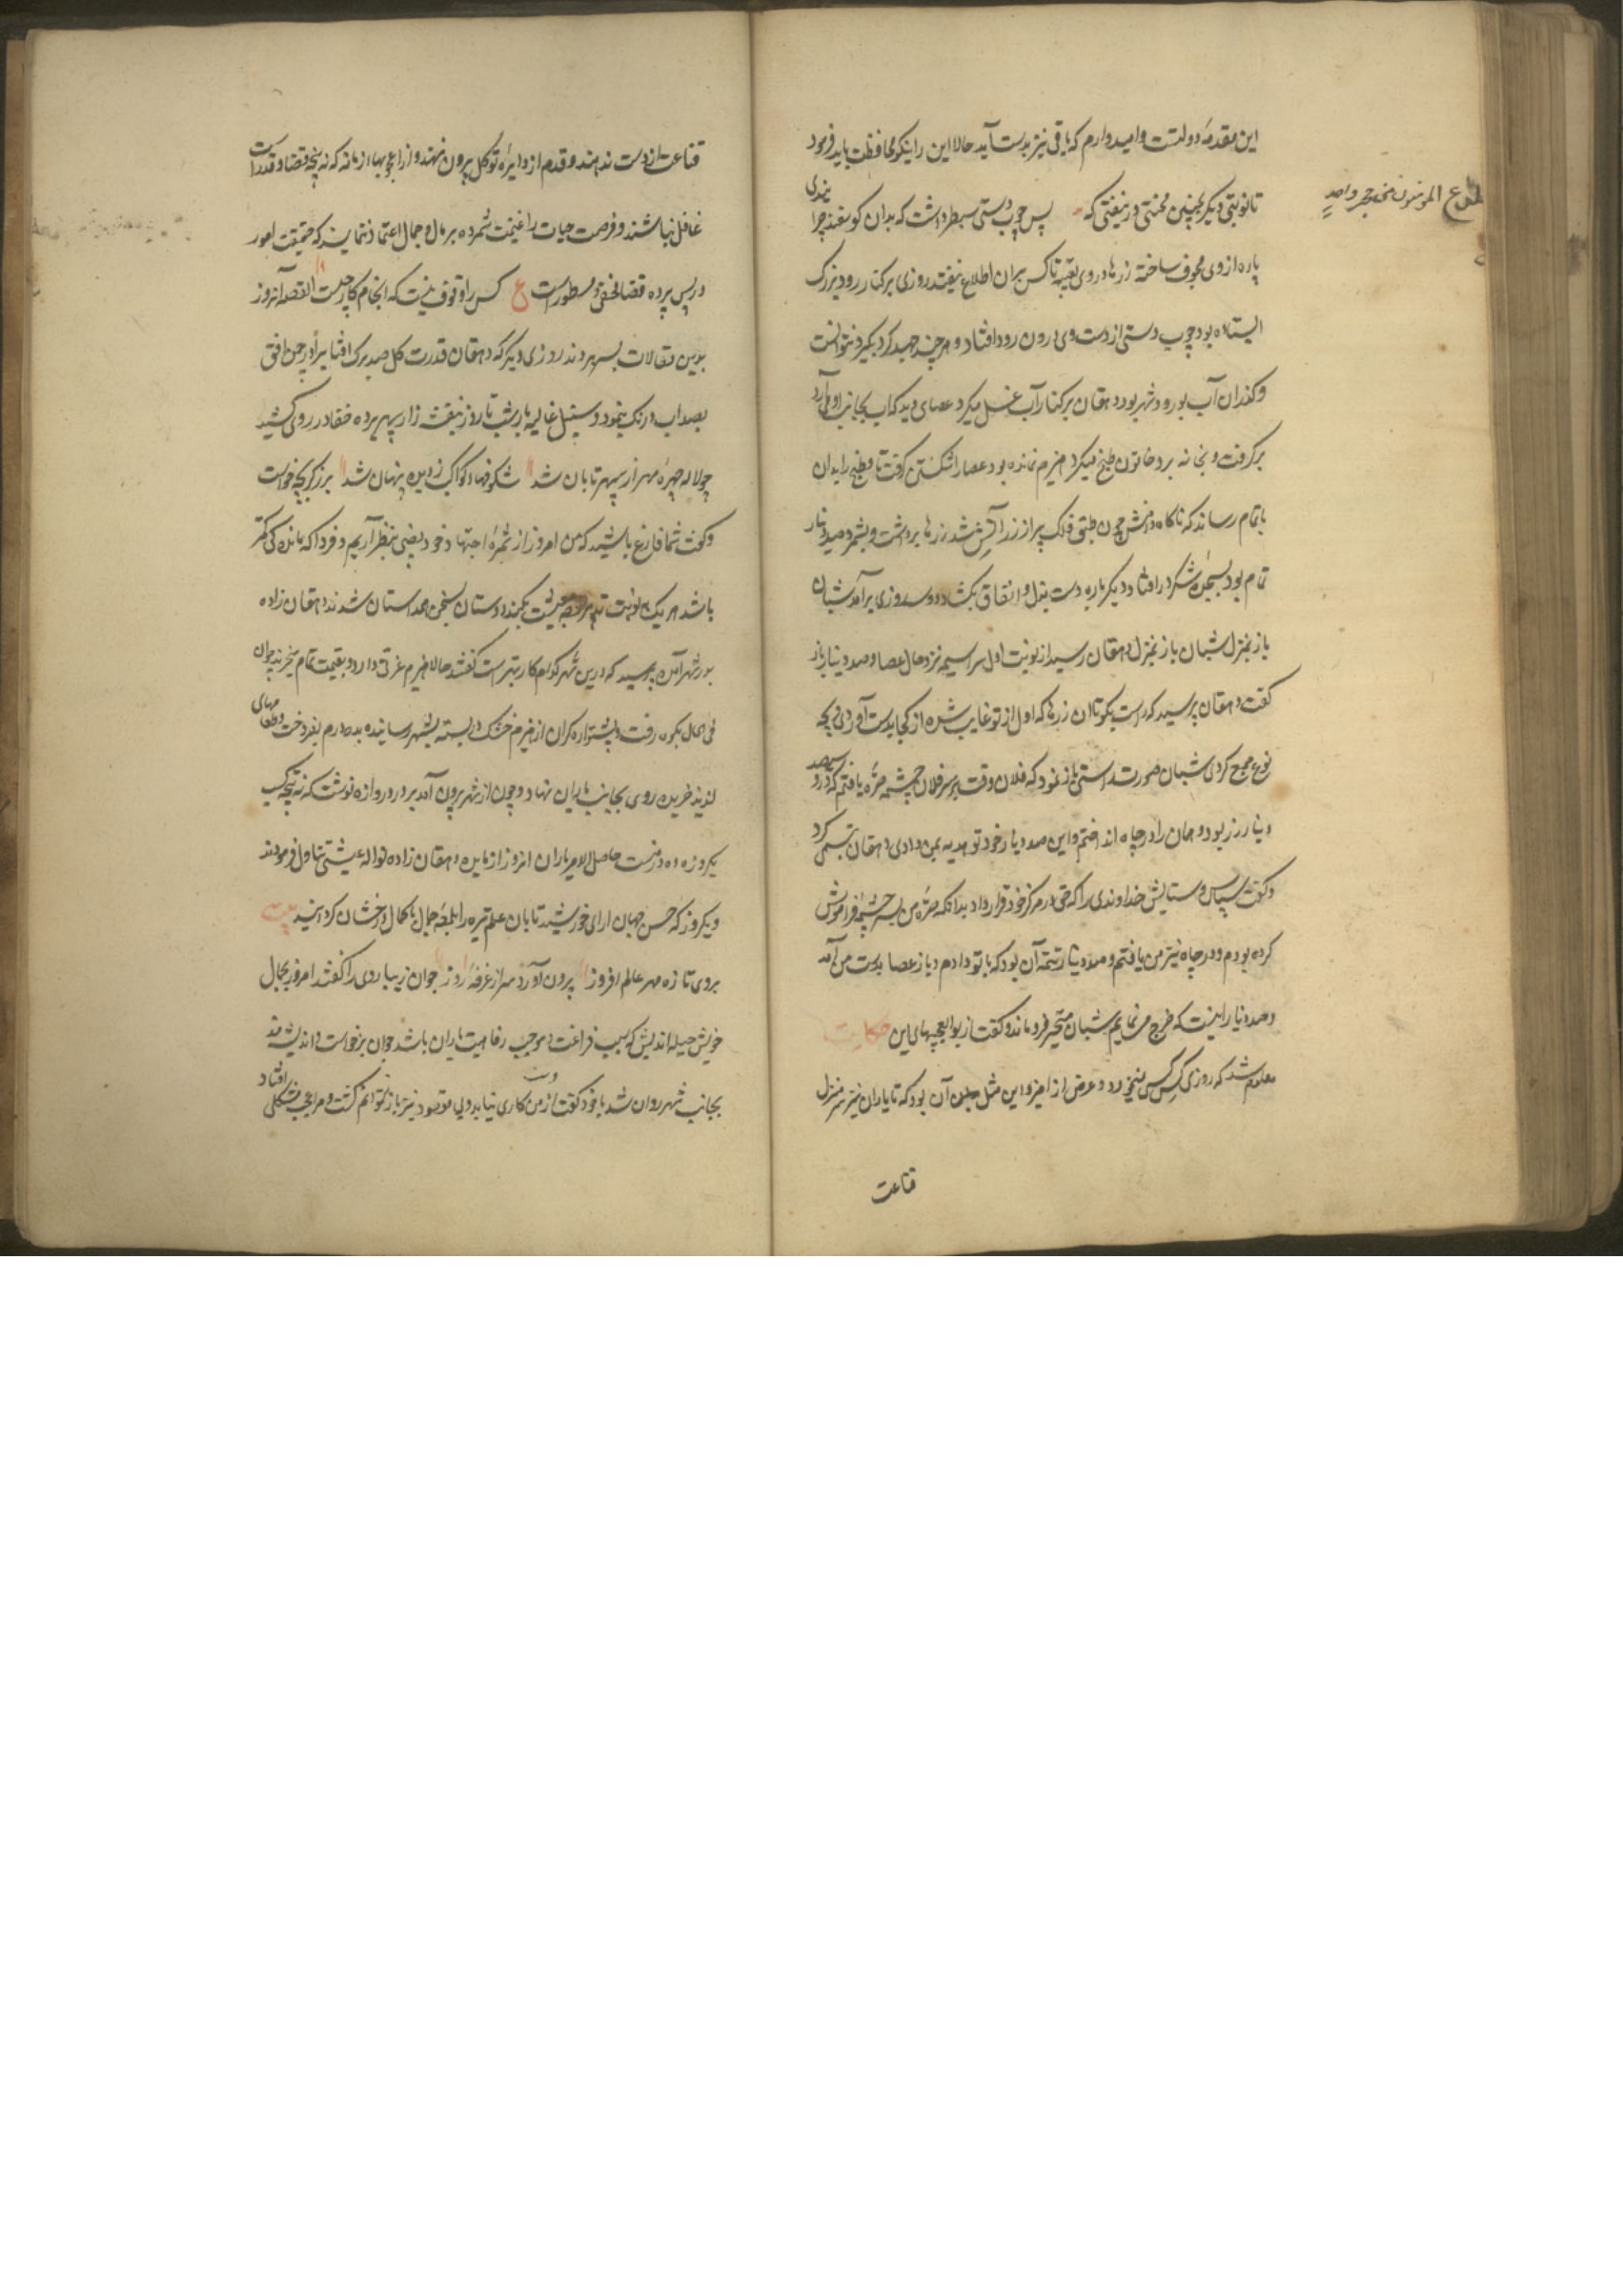 این مقدمه دولتست و امیدوارم که باقی نیز بدست آید حالا این را نیکو محافظت باید فرمود
تا نوبتی دیگر بچنین محنتی در نیفتی که پس چوب دستی سطبر داشت که بدان گوسفند چرا
نیدی
پاره از وی مجوف ساخته زرها در وی تعبیه تا کس بران اطلاع نیفتد روزی بر کنار رود بزرگ
ایستاده بود چوب دستی از دست وی درون رود افتاد و هر چند جهد کرد بگیرد نتوانست
و گذران آب بر رود شهر بود دهقان بر کنار آب غسل میکرد عصای دید که آب بجانب او می آرد
برگرفت و بخانه برد خاتون طبخ میکرد هیزم نمانده بود عصا را شکستن گرفت تا مطبخ را بدان
باتمام رساند که ناگاه دامنش چون طبق فلک پر از زر آتشین شد زرها برداشت و بشمرد صد دینار
تمام بود بسجده شکر در افتاد و دیگر باره دست بذل و انفاق بگشاد دو سه روزی بر آمد شبان
باز بمنزل دهقان رسید از نوبت اول سراسیمه تر و حال عصا و صد دینار باز
گفت دهقان پرسید که راست بگو تا آن زرها که اول از تو غایب شده از کجا بدست آوردی و بچه
نوع جمع کردی شبان صورت راستی باز نمود که فلان وقت بر سر فلان چشمه صرّه یافتم که درو
سیصد
دینار زر بود و همان را در چاه انداختم و این صد دینار خود تو هدیه بمن دادی دهقان تبسمی کرد
و گفت سپاس و ستایش خداوندی را که حق در مرکز خود قرار داد بدانکه صرّه من بسر چشمه فراموش
کرده بودم و در چاه نیز من یافتم و صد دینار تتمه آن بود که با تو دادم و باز عصا بدست من آمد
و صد دینار اینست که خرج می نمایم شبان متحیر فرو ماند و گفت از بوالعجبیهای این حکایت
معلوم شد که روزی کس کس نمیخورد و غرض از ایراد این مثل آن بود که تا یاران نیز سر منزل
قناعت
قناعت از دست ندهند و قدم از دایره توکل بیرون ننهند و از اعجوبهاء زمانه که نه پنجه قضا و قدر است
غافل نباشند و فرصت حیات را غنیمت شمرده بر مال و جمال اعتماد ننمایند که حقیقت امور
در پس پرده قضا مخفی و مسطور است ع کس را وقوف نیست که انجام کار چیست القصه آنروز
بدین مقالات بسر بردند روزی دیگر که دهقان قدرت گل صد برگ آفتاب را در چمن افق
بصد آب و رنگ بنمود و سنبل غالیه بار شب تا روز بنفشه زار سپهر پرده خفا در روی کشید
چو لاله چهره مهر از سپهر تابان شد شکوفهاء کواکب ز دیده پنهان شد برزگر بچه برخاست
و گفت شما فارغ باشید که من امروز از ثمره اجتهاد خود نصیبی بنظر آریم و فردا که ماندگی کمتر
باشد هر یک بنوبت تدبیر معیشت بکند دوستان بسخن همداستان شدند دهقان زاده
بدر شهر آمد پرسید که درین شهر کدام کار بهتر است گفتند حالا هیزم عزتی دارد و بقیمت تمام میخرند جوان
فی الحال بکوه رفت و پشتواره گران از هیزم خشک در بسته بشهر رسانیده بده درم بفروخت و طعامهای
لذیذ خریده روی بجانب یاران نهاد و چون از شهر بیرون آمد بر در دروازه نوشت که نتیجه کسب
یکروزه ده درمست حاصل الامر یاران امروز از مایده دهقان زاده نواله عیشتی تناول فرمودند
و دیگر روز که حسن جهان آرای خورشید تابان عالم تیره را بلمعه جمال باکمال درخشان گردانید بیت
بروی تازه مهر عالم افروز برون آورد سر از غرفه روز جوان زیبا روی را گفتند امروز بجمال
خویش حیله اندیش که سبب فراغت و موجب رفاهیت یاران باشد جوان برخواست و اندیشه مند
بجانب شهر روان شد با خود گفت از من کاری نیاید و بی مقصود نیز باز نتوانم گشت و مرا عجب مشکلی
دست
افتاد